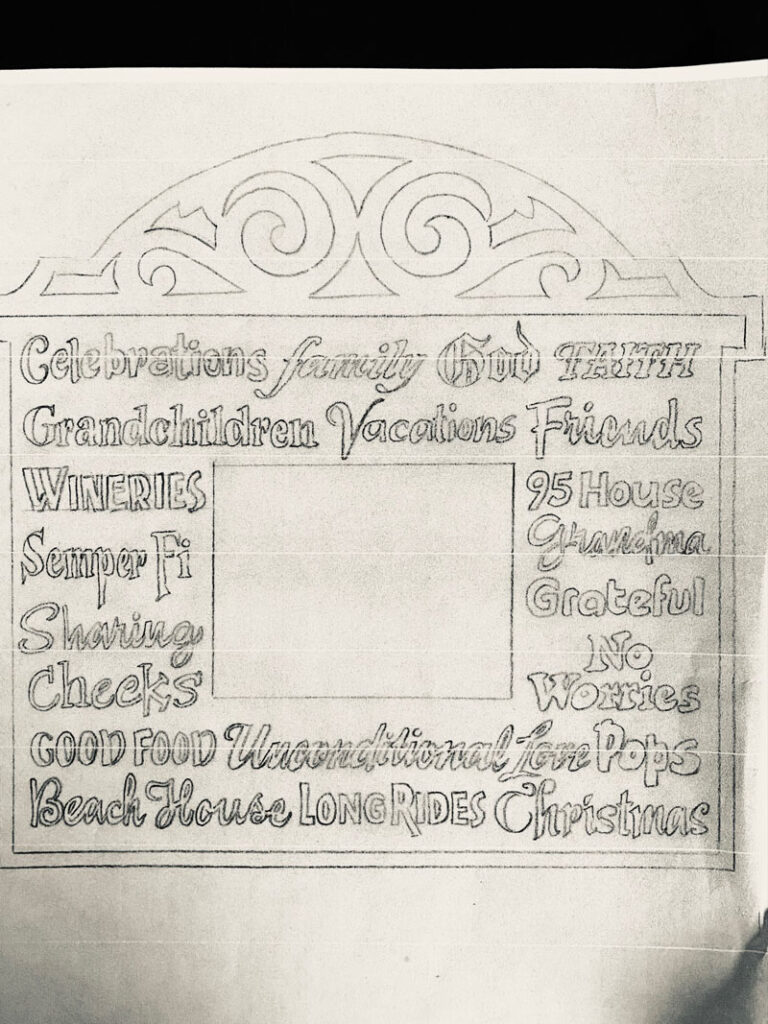 Celebrations family God FAITH
Grandchildren Vacations Friends
WINERIES
Semper Fi
Sharing
Cheeks
95 House
Grandma
Grateful
No
Worries
GOOD FOOD Unconditional Love Pops
Beach House LONG RIDES Christmas